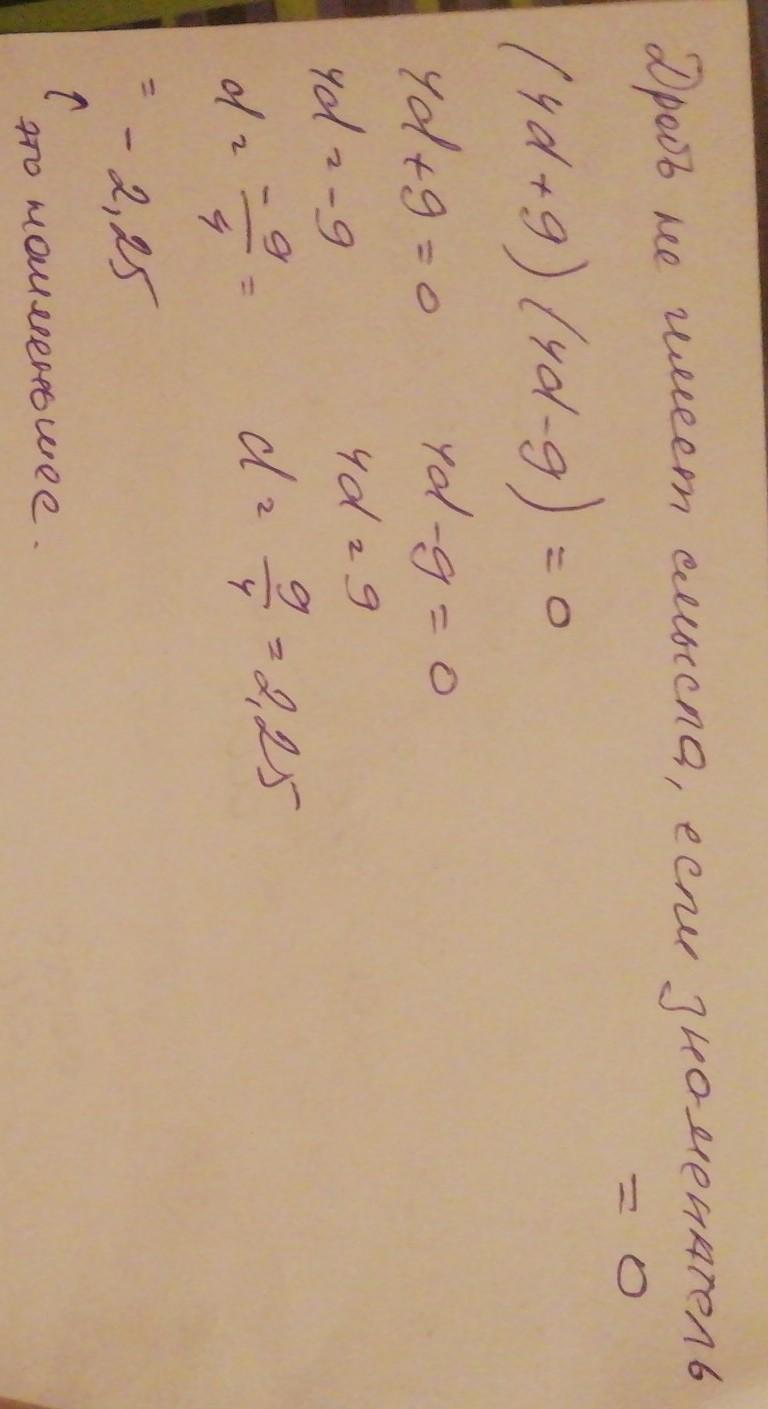 Дробь не имеет смысла, если знаменатель
= 0
(4d + 9) (4d - 9) = 0
4d + 9 = 0 4d - 9 = 0
4d = -9 4d = 9
d = -9/4 = d = 9/4 = 2,25
= - 2,25
↑
это наименьшее.